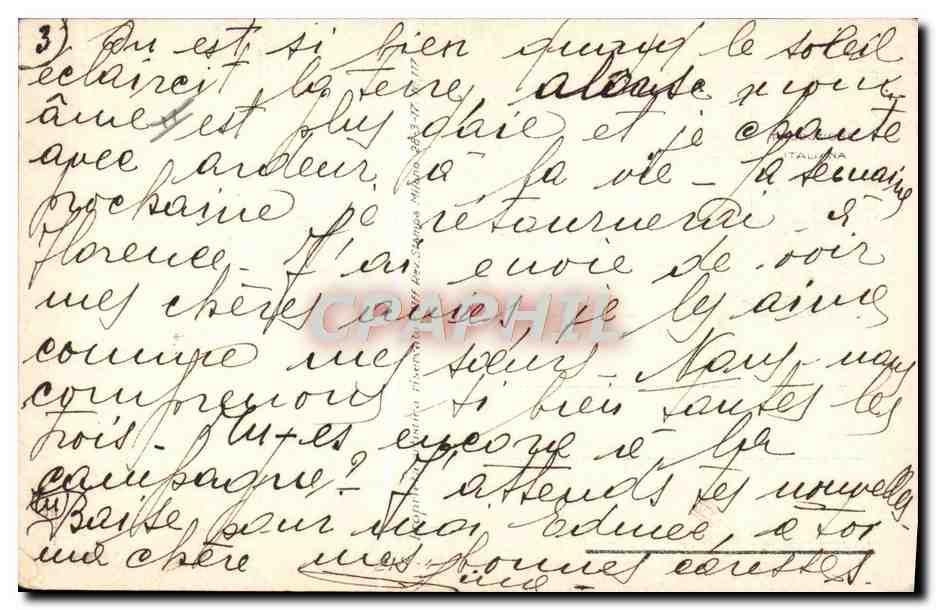 3) On est si bien quand le soleil
eclaircit la terre, alors mon
âme est plus gaie et je chante
avec ardeur à la vie - la semaine
prochaine je retournerai à
Florence - J'ai envie de voir
mes chères amies, je les aime
comme mes sœurs - Nous nous
comprenons si bien toutes les
trois - Tu es encore à la
campagne? J'attends tes nouvelles -
(tu) Baise pour moi Edmée, a toi
ma chère mes bonnes caresses.
ITALIANA
CPAPHIL